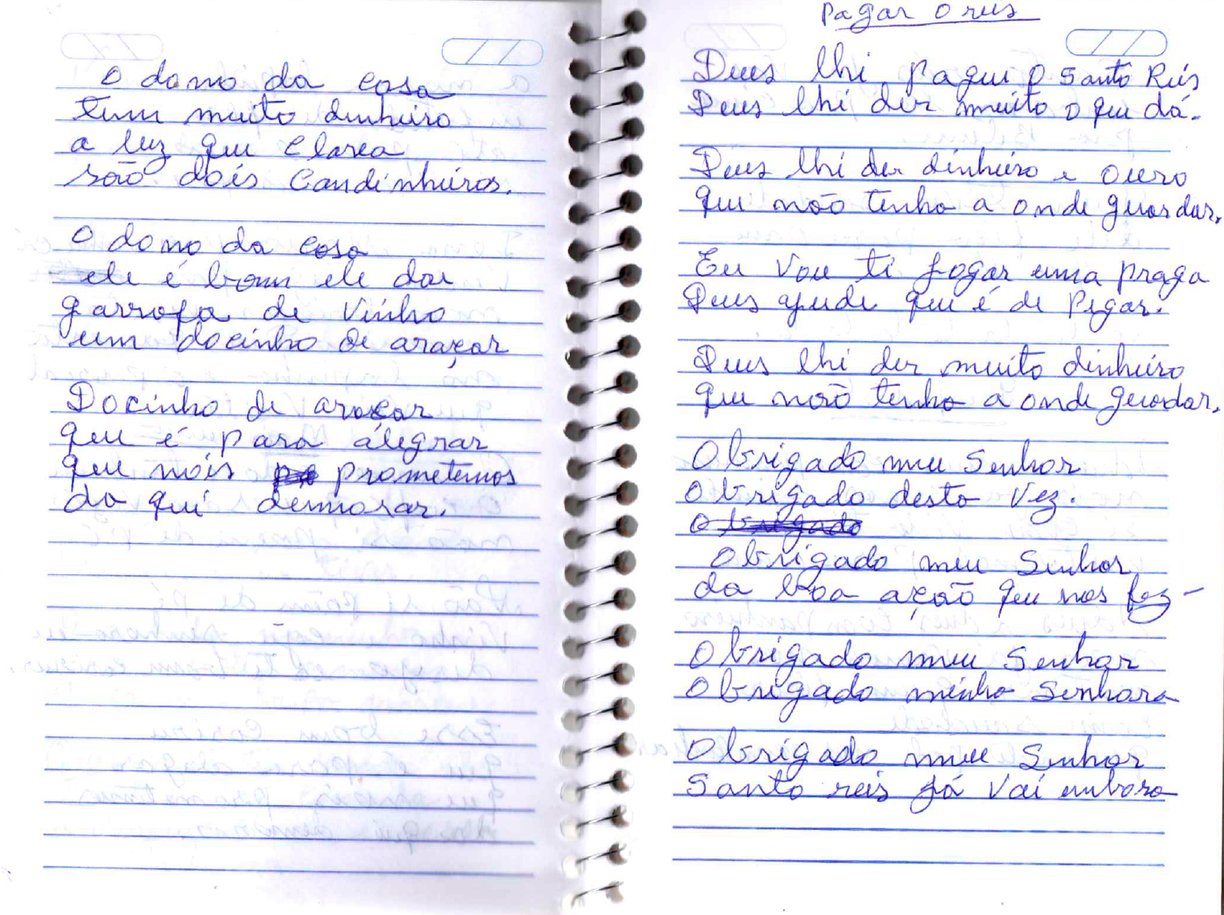 O dono da casa
tem muito dinheiro
a luz que clarea
são dois candinheiros.
O dono da casa
ele é bom ele dar
garrafa de vinho
um docinho de araçar
Docinho de araçar
que é para alegrar
que nois prometemos
da qui demorar.
Pagar o reis
Deus lhi pagui o santo Reis
Deus lhi der muito o que dá.
Deus lhi der dinheiro e ouro
que não tenho a onde guardar.
Eu vou ti jogar uma praga
Deus ajude qui é de pegar.
Deus lhi der muito dinheiro
que não tenho a onde guardar.
Obrigado meu Senhor
Obrigado desta vez.
Obrigado
Obrigado meu Senhor
da boa ação que nos fez-
Obrigado meu Senhor
Obrigado minha Senhora
Obrigado meu Senhor
Santo reis já vai embora